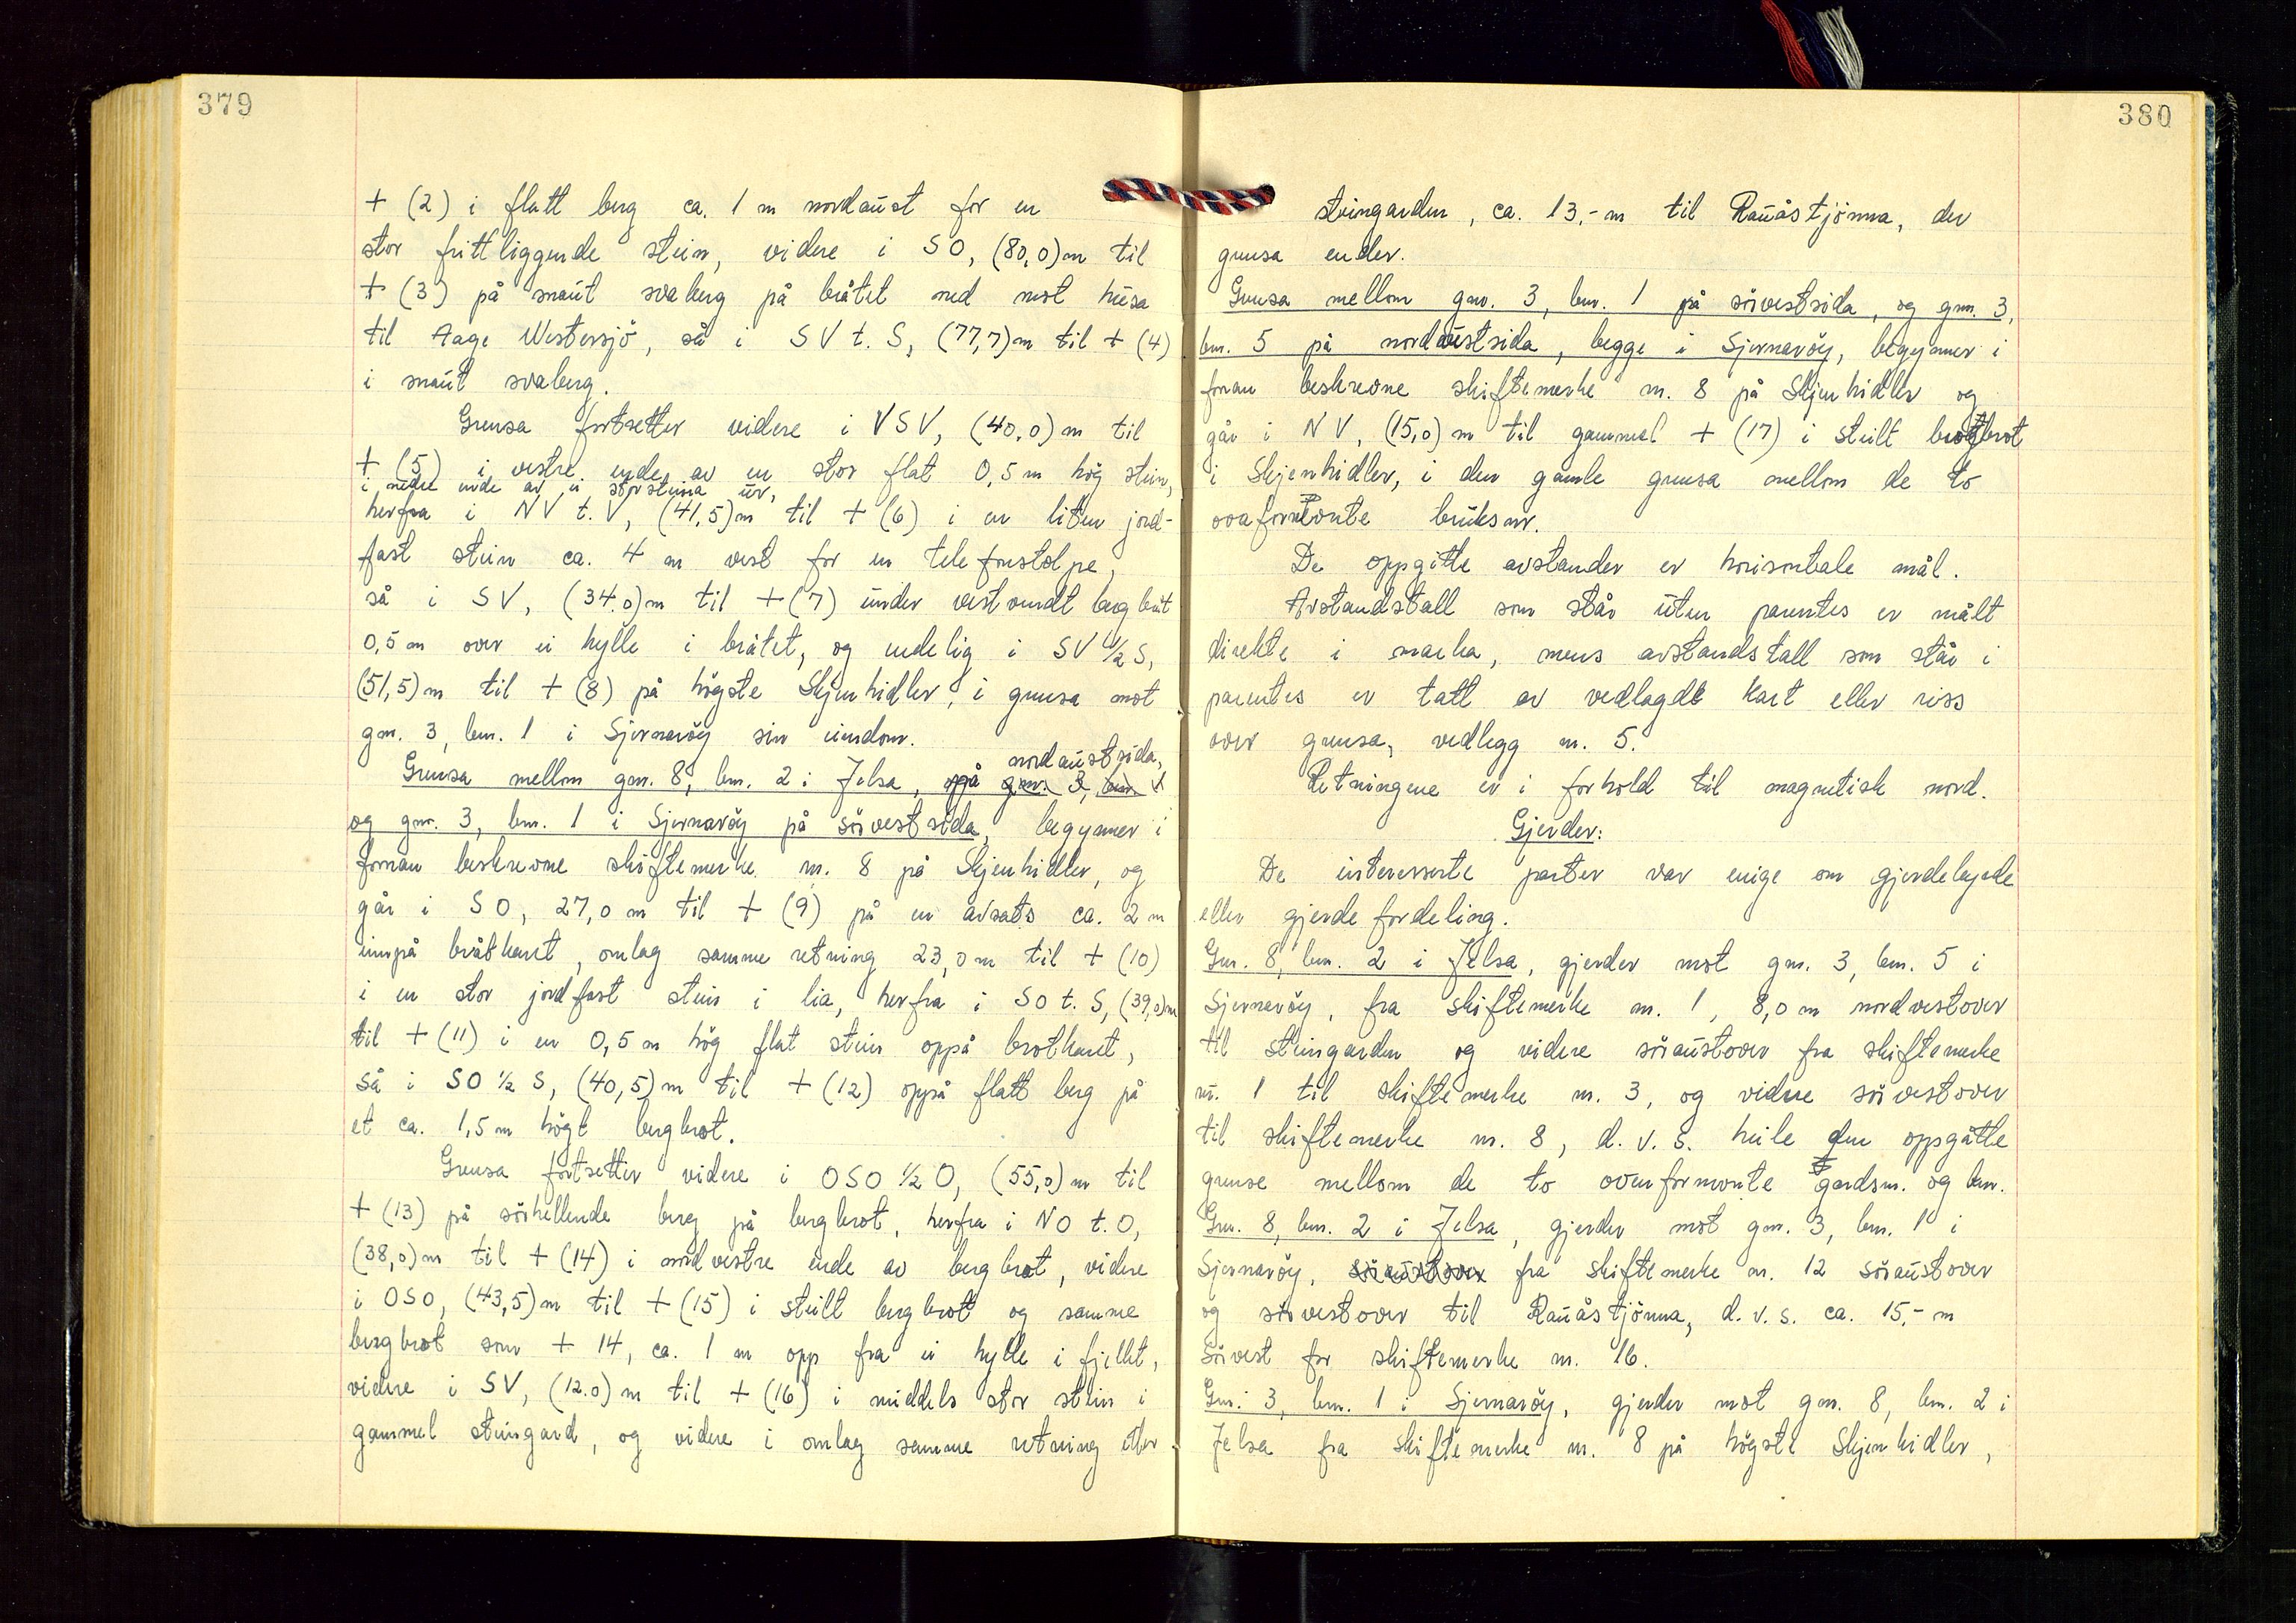 379
+ (2) i flatt berg ca. 1 m nordaust for en
stor frittliggende stein, videre i SO, (80,0)m til
+ (3) på snaut svaberg på bråtet ned mot husa
til Aage Westersjö, så i SV t. S, (77,7)m til + (4)
i snaut svaberg.
Grensa fortsetter videre i VSV, (40,0)m til
+ (5) i vestre ende av en stor flat 0,5 m høg stein,
i nedre ende av ei storsteina ur,
herfra i NV t. V, (41,5)m til + (6) i en liten jord-
fast stein ca. 4 m vest for en telefonstolpe,
så i SV, (34.0)m til + (7) under vestvendt bergbrot
0,5 m over ei hylle i bråtet, og endelig i SV 1/2 S,
(51,5)m til + (8) på högste Skjenhidler, i grensa mot
gnr. 3, bnr. 1 i Sjernaröy sin eiendom.
nordaustsida,
Grensa mellom gnr. 8, bnr. 2 i Jelsa, på gnr. 3, bnr. 1
og gnr. 3, bnr. 1 i Sjernaröy på sörvestsida, begynner i
foran beskrevne skiftemerke nr. 8 på Skjenhidler, og
går i SO, 27,0 m til + (9) på en avsats ca. 2 m
innpå bråtkant, omlag samme retning 23,0 m til + (10)
i en stor jordfast stein i lia, herfra i SO t. S, (39,0)m
til + (11) i en 0,5 m hög flat stein oppå brotkant,
så i SO 1/2 S, (40,5)m til + (12) oppå flatt berg på
et ca. 1,5 m högt bergbrot.
Grensa fortsetter videre i OSO 1/2 O, (55,0)m til
+ (13) på sörhellende berg på bergbrot, herfra i NO t. O,
(38,0)m til + (14) i nordvestre ende av bergbrot, videre
i OSO, (43,5)m til + (15) i steilt bergbrot og samme
bergbrot som + 14, ca. 1 m opp fra ei hylle i fjellet,
videre i SV, (12.0)m til + (16) i middels stor stein i
gammel steingard, og videre i omlag samme retning etter
380
steingarden, ca. 13,- m til Rauåstjönna, der
grensa ender.
Grensa mellom gnr. 3, bnr. 1 på sörvestsida, og gnr. 3,
bnr. 5 på nordvestsida, begge i Sjernaröy, begynner i
foran beskrevne skiftemerke nr. 8 på Skjenhidler og
går i NV, (15,0)m til gammel + (17) i steilt brot
i Skjenhidler, i den gamle grensa mellom de to
ovafornemnte bruksnr.
De oppgitte avstander er horisontale mål.
Avstandstall som står uten parentes er målt
direkte i marka, mens avstandstall som står i
parentes er tatt av vedlagdt kart eller riss
over grensa, vedlegg nr. 5.
Retningene er i forhold til magnetisk nord.
Gjerder:
De interesserte parter var enige om gjerdehogde
eller gjerdefordeling.
Gnr. 8, bnr. 2 i Jelsa, gjerder mot gnr. 3, bnr. 5 i
Sjernaröy, fra skiftemerke nr. 1, 8,0 m nordvestover
til steingarden og videre söraustover fra skiftemerke
nr. 1 til skiftemerke nr. 3, og videre sörvestover
til skiftemerke nr. 8, d. v. s. heile den oppgåtte
grense mellom de to ovenfornevnte gardsnr. og bnr.
Gnr. 8, bnr. 2 i Jelsa, gjerder mot gnr. 3, bnr. 1 i
Sjernaröy, söraustover fra skiftemerke nr. 12 söraustover
og sörvestover til Rauåstjönna, d. v. s. ca. 15,- m
sörvest for skiftemerke nr. 16.
Gnr. 3, bnr. 1 i Sjernaröy, gjerder mot gnr. 8, bnr. 2 i
Jelsa fra skiftemerke nr. 8 på högste Skjenhidler,